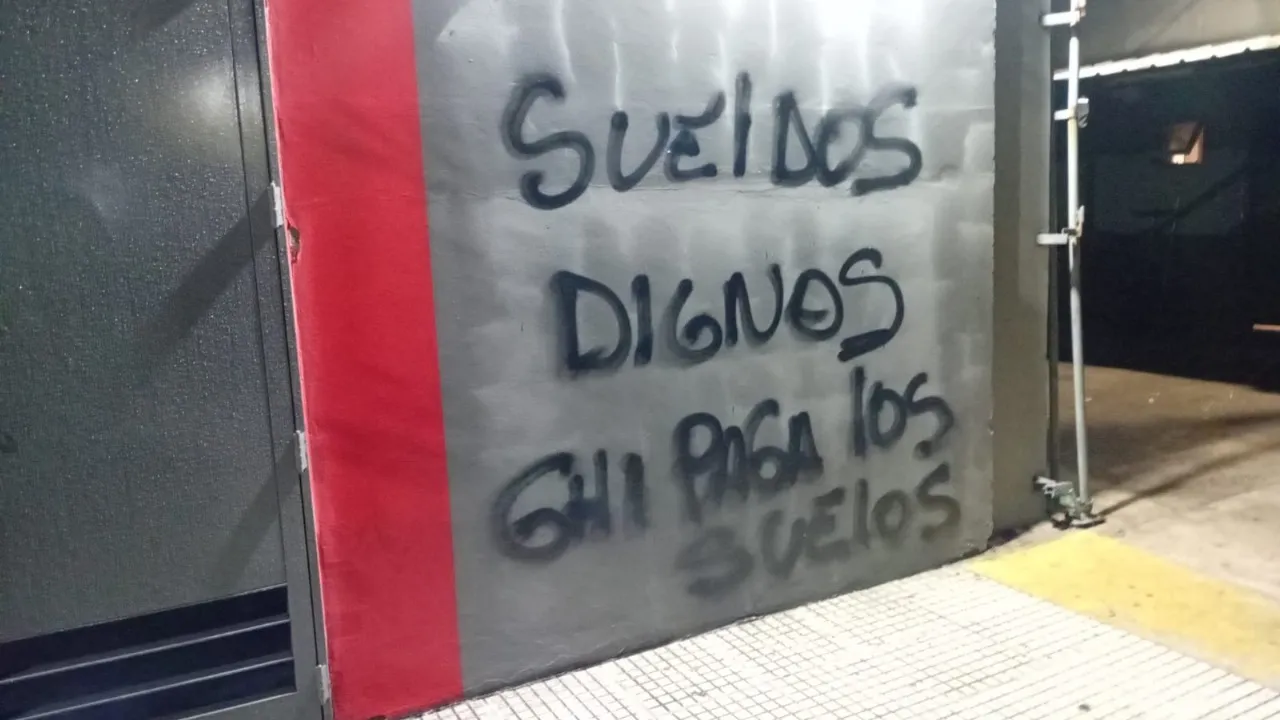 SUElDOS
DIGNOS
GHI PAGA lOS
SUElOS